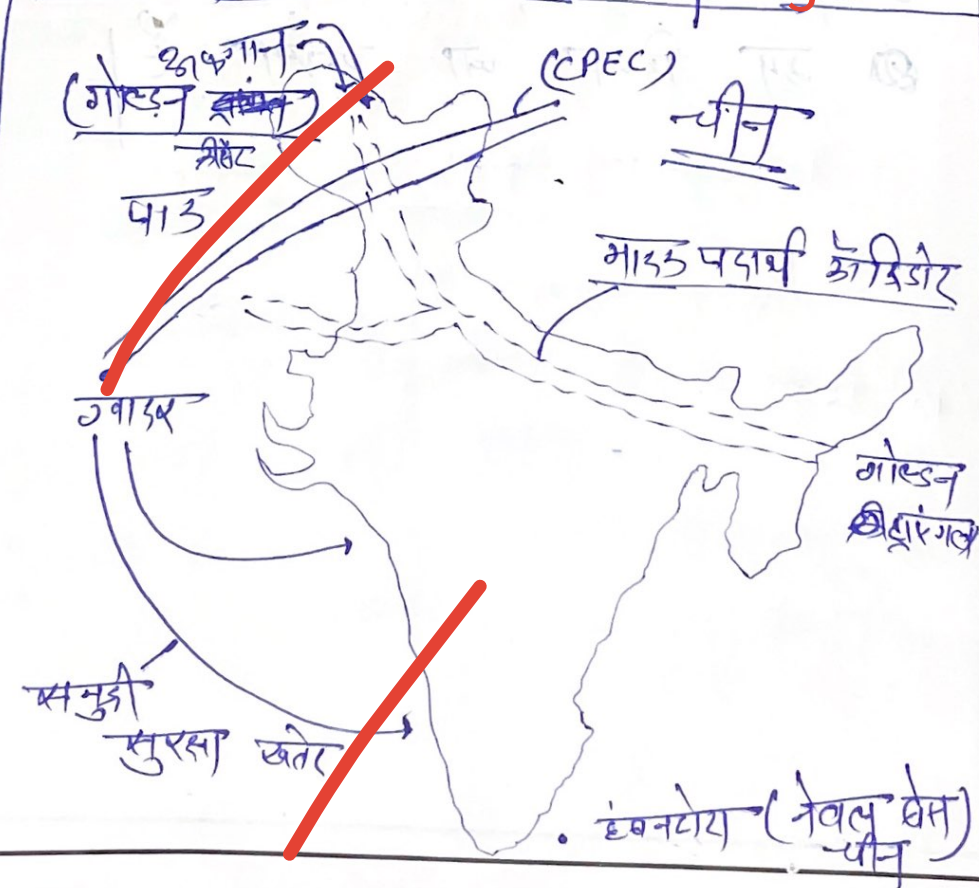 अफगान
(गोल्डन
क्रीसेंट
(CPEC)
चीन
पाक
मादक पदार्थ कॉरिडोर
ग्वादर
गोल्डन
ट्राएंगल
समुद्री
सुरक्षा खतरे
हंबनटोटा (नेवल बेस)
चीन